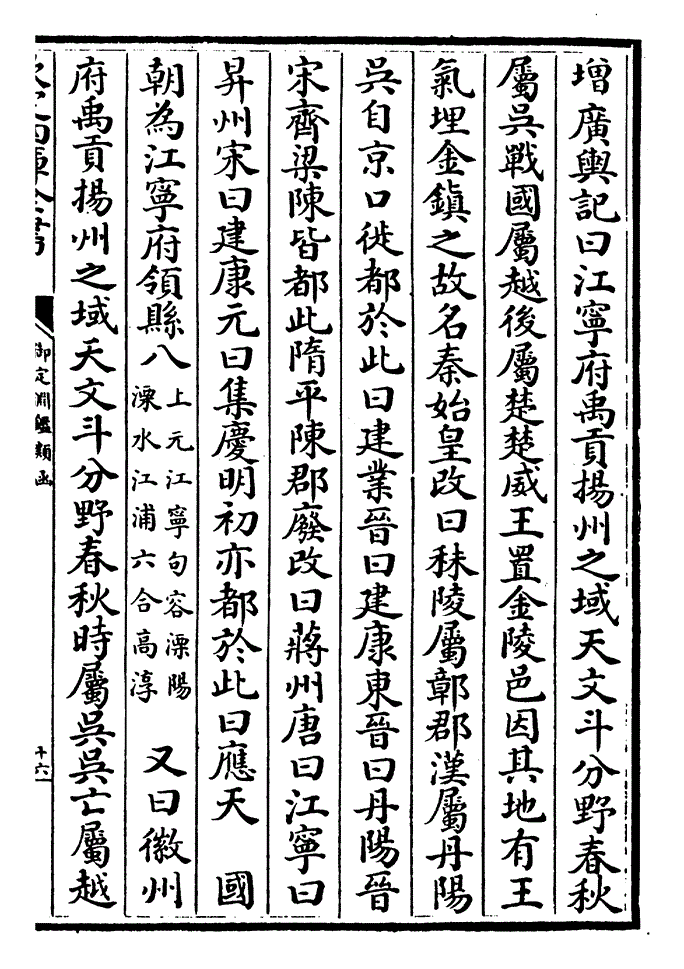 增廣輿記曰江寧府禹貢揚州之域天文斗分野春秋
屬吳戰國屬越後屬楚楚威王置金陵邑因其地有王
氣埋金鎮之故名秦始皇改曰秣陵屬鄣郡漢屬丹陽
吳自京口徙都於此曰建業晉曰建康東晉曰丹陽晉
宋齊梁陳皆都此隋平陳郡廢改曰蔣州唐曰江寧曰
昇州宋曰建康元曰集慶明初亦都於此曰應天　國
朝為江寧府領縣八
上元江寧句容溧陽
溧水江浦六合高淳
又曰徽州
府禹貢揚州之域天文斗分野春秋時屬吳吳亡屬越
御定淵鑑類函
十六